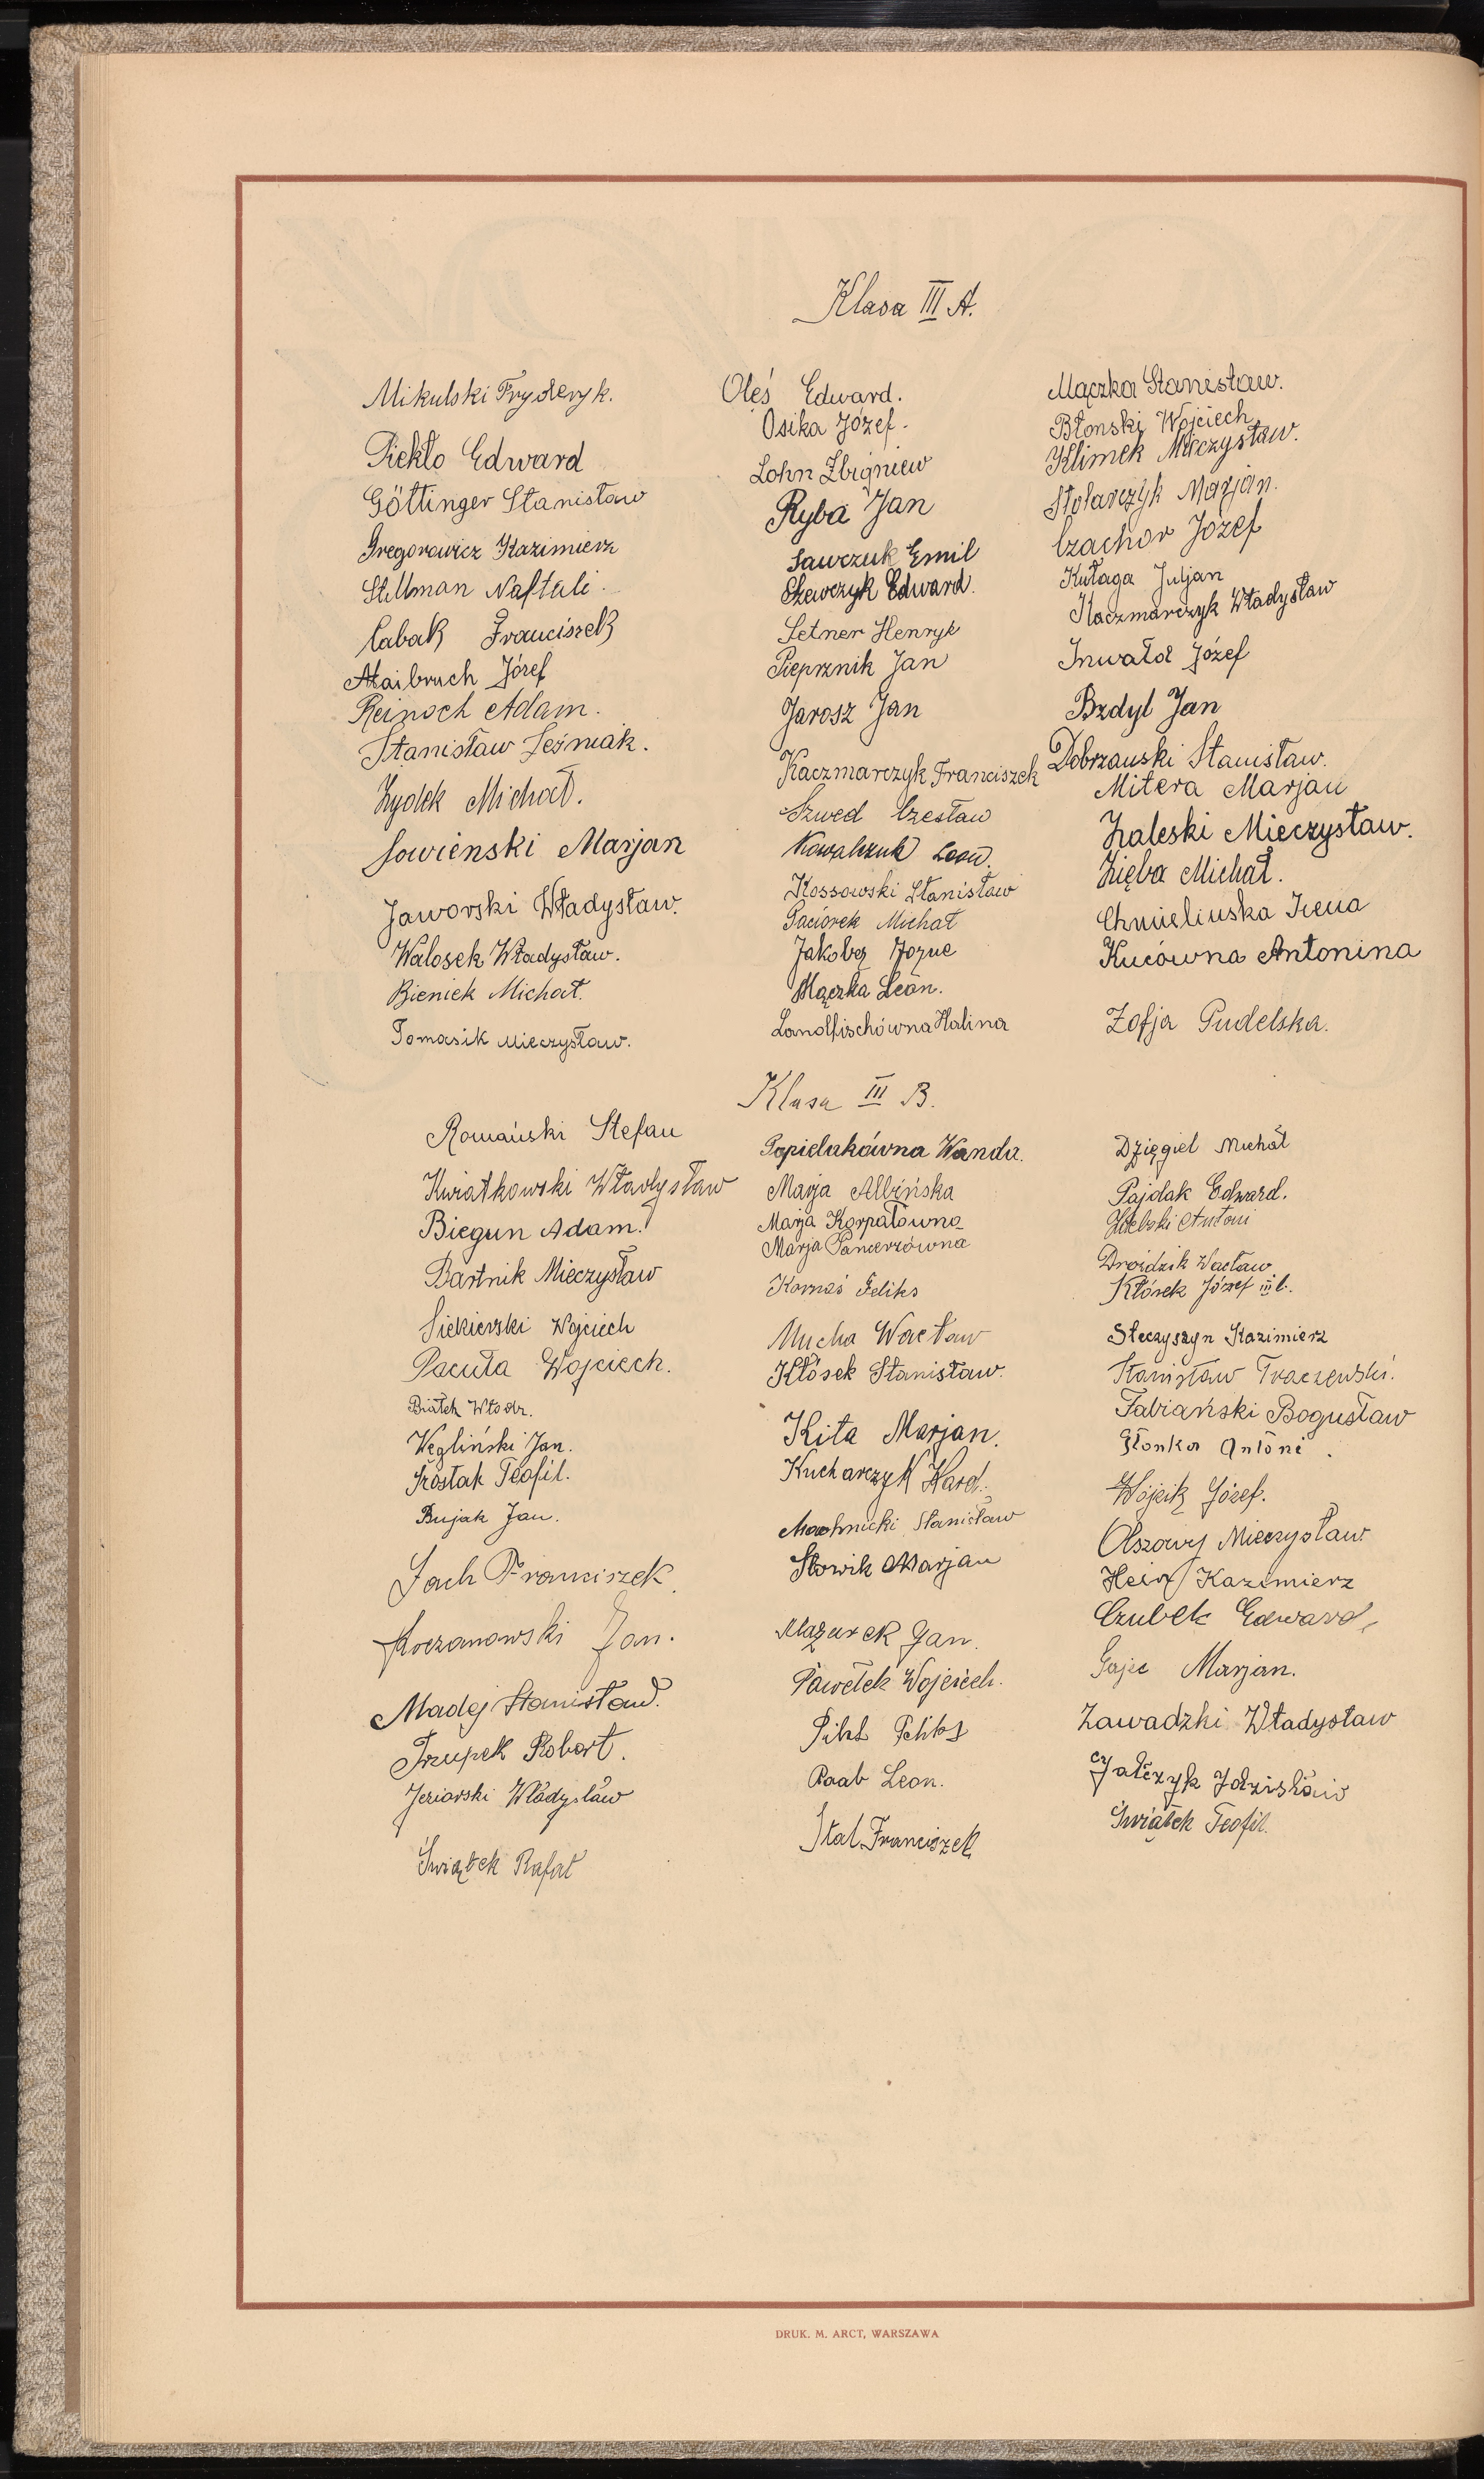 Klasa III A.
Mikulski Fryderyk.
Piekło Edward
Göttinger Stanisław
Gregorowicz Kazimierz
Stillman Naftali.
Cabak Franciszek
Maibruch Józef
Reinoch Adam.
Stanisław Leśniak.
Żydek Michał.
Sowieński Marjan
Jaworski Władysław.
Walosek Władysław.
Bieniek Michał.
Tomasik Mieczysław.
Oleś Edward.
Osika Józef.
Lohn Zbigniew
Ryba Jan
Sawczuk Emil
Szewczyk Edward.
Setner Henryk
Pieprznik Jan
Jarosz Jan
Kaczmarczyk Franciszek
Szwed Czesław
Kowalczuk Leon.
Kossowski Stanisław
Paciorek Michał
Jakober Jozue
Mączka Leon.
Landfischówna Halina
Mączka Stanisław.
Błonski Wojciech
Klimek Mieczysław.
Stolarczyk Marjan.
Czachor Józef
Kułaga Juljan
Kaczmarczyk Władysław
Inwałd Józef
Bzdyl Jan
Dobrzański Stanisław.
Mitera Marjan
Zaleski Mieczysław.
Zięba Michał.
Chmielińska Irena
Kucówna Antonina
Zofja Pudelska.
Klasa III B.
Romański Stefan
Kwiatkowski Władysław
Biegun Adam.
Bartnik Mieczysław
Siekierski Wojciech
Pacuła Wojciech.
Białek Włodz.
Węgliński Jan.
Szóstak Teofil.
Bujak Jan.
Lach Franciszek
Koczanowski Jan.
Madej Stanisław.
Trzupek Robert.
Jeziorski Władysław
Świątek Rafał
Popielakówna Wanda.
Marja Albińska
Marja Karpałówna
Marja Pancerzówna
Kornaś Feliks
Mucha Wacław
Kłósek Stanisław.
Kita Marjan.
Kucharczyk
Machnicki Stanisław
Słowik Marjan
Mazurek Jan.
Pawełek Wojciech.
Feliks
Raab Leon.
Stal Franciszek
Dzięgiel Michał
Pajdak Edward.
Antoni
Droździk Wacław
Kłósek Józef III b.
Steczyszyn Kazimierz
Stanisław Traczewski.
Fabiański Bogusław
Słonka Antoni.
Wójcik Józef.
Olszowy Mieczysław
Kazimierz
Czubek Edward,
Gajec Marjan.
Zawadzki Władysław
Gałczyk Zdzisław
Świątek Teofil.
DRUK. M. ARCT, WARSZAWA